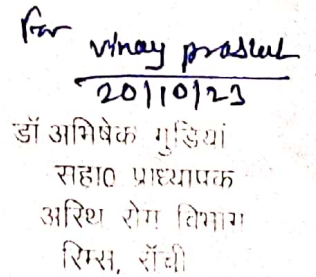 For
vinay prasad
20/10/23
डॉ अभिषेक गुड़िया
सहा० प्राध्यापक
अस्थि रोग विभाग
रिम्स, राँची